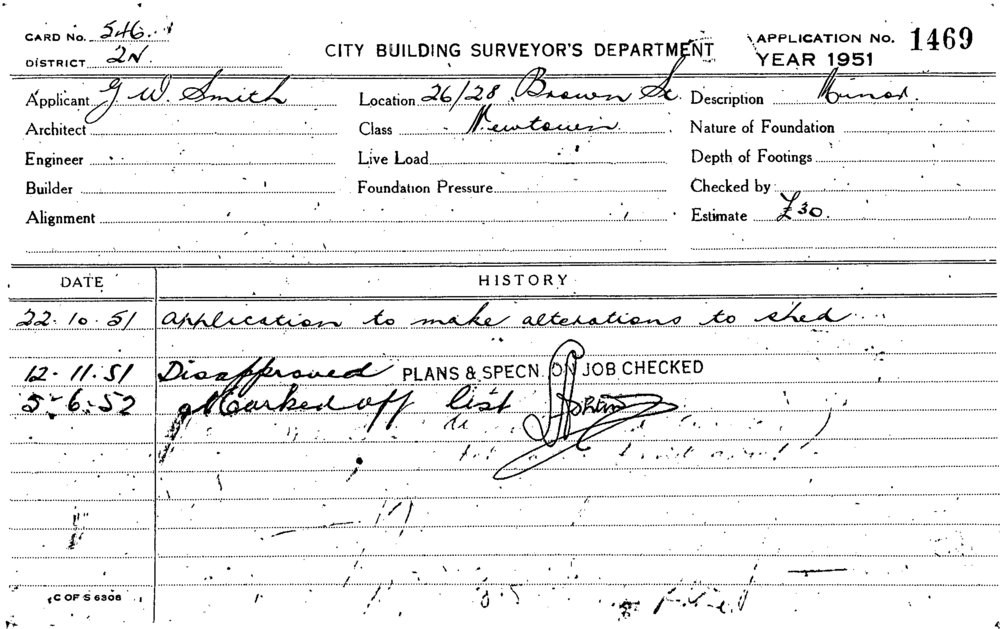 CARD No. 546
DISTRICT 2N.
CITY BUILDING SURVEYOR'S DEPARTMENT
APPLICATION No. 1469
YEAR 1951
Applicant G W. Smith
Location 26/28 Brown St.
Description Minor.
Architect
Class Newtown
Nature of Foundation
Engineer
Live Load
Depth of Footings
Builder
Foundation Pressure
Checked by
Alignment
Estimate £30.
DATE HISTORY
22.10.51 Application to make alterations to shed
12.11.51 Disapproved PLANS & SPECN. ON JOB CHECKED
5-6-52 Marked off list
C OF S 6308